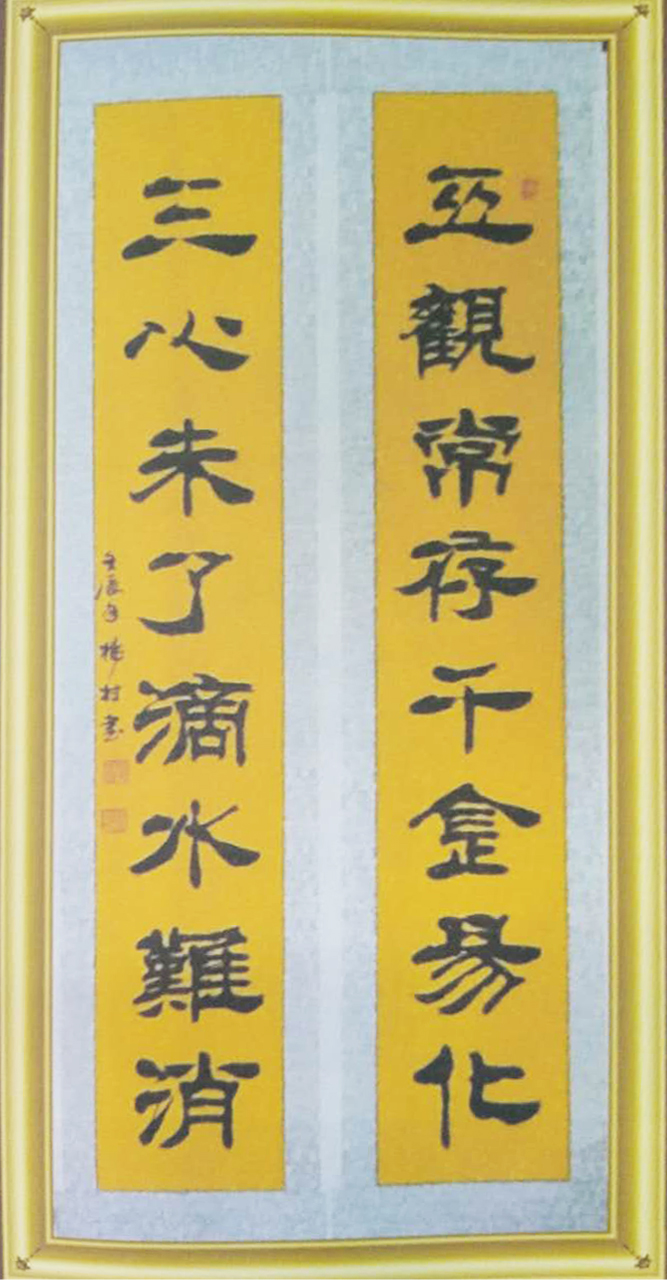 五觀常存千金易化
三心未了滴水難消
壬辰年楊村書